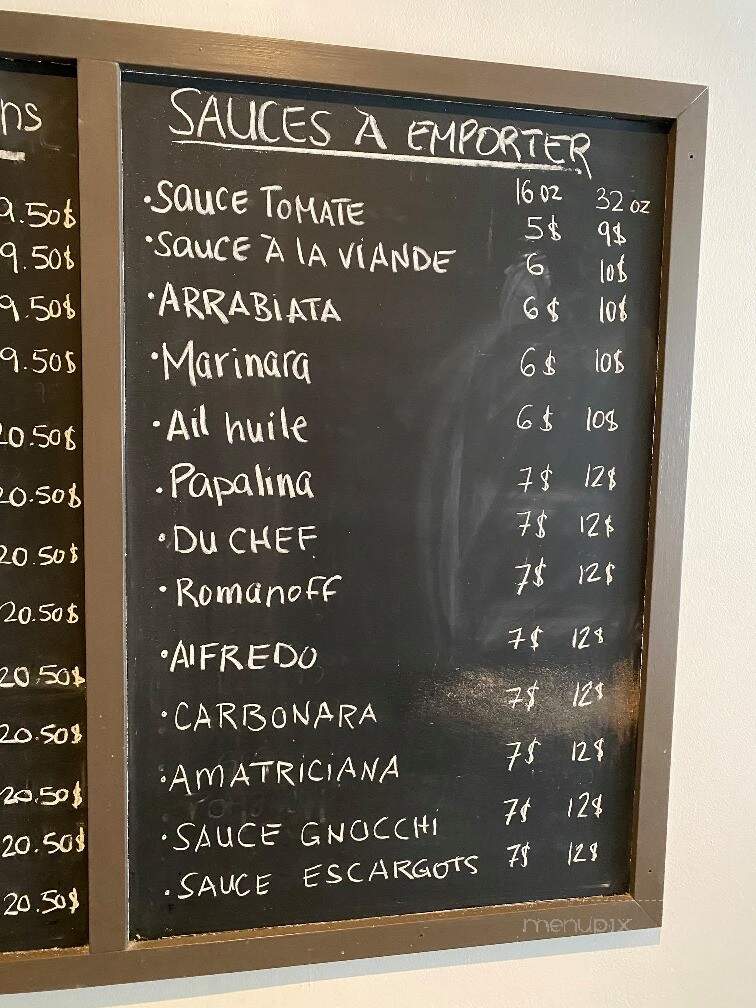 ns
9.50$
9.50$
9.50$
9.50$
20.50$
20.50$
20.50$
20.50$
20.50$
20.50$
20.50$
20.50$
20.50$
SAUCES À EMPORTER
16 oz 32 oz
•SAUCE TOMATE 5$ 9$
•SAUCE À LA VIANDE 6 10$
•ARRABIATA 6$ 10$
•Marinara 6$ 10$
•Ail huile 6$ 10$
•Papalina 7$ 12$
•DU CHEF 7$ 12$
•Romanoff 7$ 12$
•AlFREDO 7$ 12$
•CARBONARA 7$ 12$
•AMATRICIANA 7$ 12$
•SAUCE GNOCCHi 7$ 12$
•SAUCE ESCARGOTS 7$ 12$
menupix